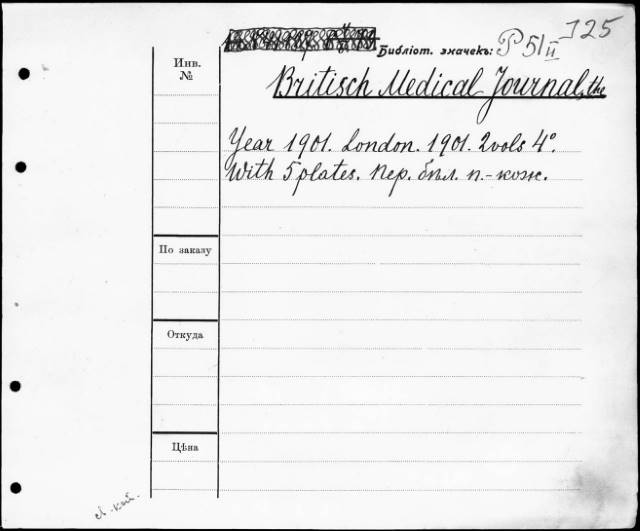 125
Библіот. значекъ: P 51/II
Britisch Medical Journal, the
Инв.
№
Year 1901. London. 1901. 2 vols 4°.
With 5 plates. Пер. бѣл. п.-кож.
По заказу
Откуда
Цѣна